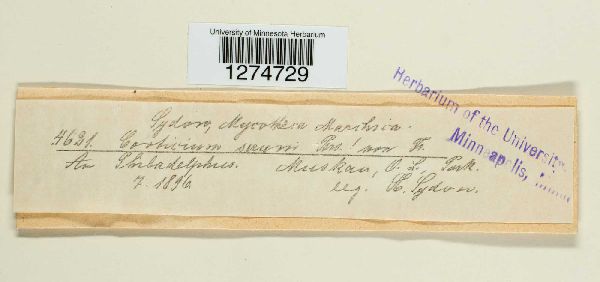 University of Minnesota Herbarium
1274729
Herbarium of the University
Minneapolis, Minn.
Sydow, Mycotheca Marchica.
4621. Corticium Pers.! non Fr.
An Philadelphus. Muskau, O. L. Park.
7. 1896. leg. H. Sydow.